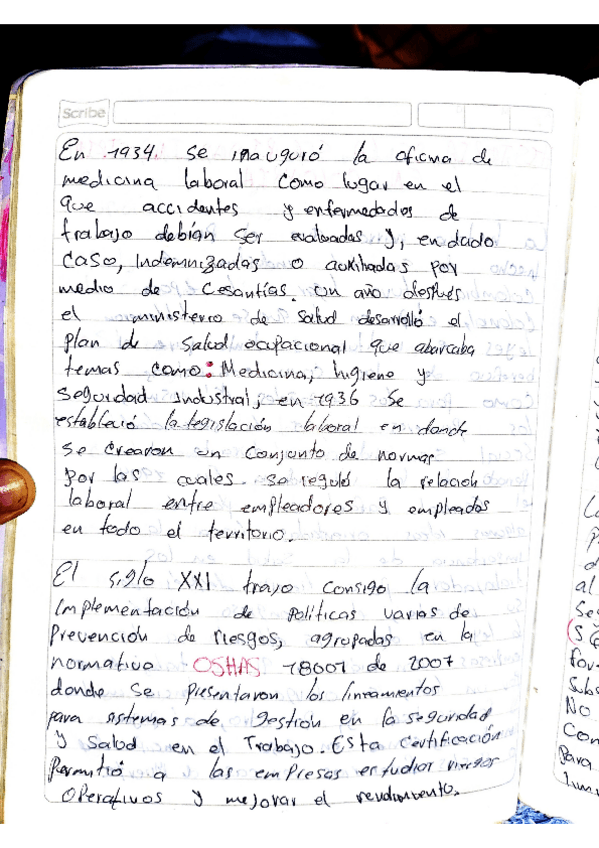 Scribe
En 1934. se inauguró la oficina de
medicina laboral como lugar en el
que accidentes y enfermedades de
trabajo debían ser evaluadas y, en dado
caso, indemnizadas o auxiliadas por
medio de cesantías. un año después
el ministerio de salud desarrolló el
plan de salud ocupacional que abarcaba
temas como: Medicina, higiene y
seguridad industrial, en 1936 se
estableció la legislación laboral en donde
se crearon un conjunto de normas
por las cuales se reguló la relación
laboral entre empleadores y empleados
en todo el territorio.
El siglo XXI trajo consigo la
implementación de políticas varias de
prevención de riesgos, agrupadas en la
normativa OSHAS 18001 de 2007
donde se presentaron los lineamientos
para sistemas de gestión en la seguridad
y salud en el Trabajo. Esta certificación
permitió a las empresas estudiar riesgos
operativos y mejorar el rendimiento.
al
No
Con
para